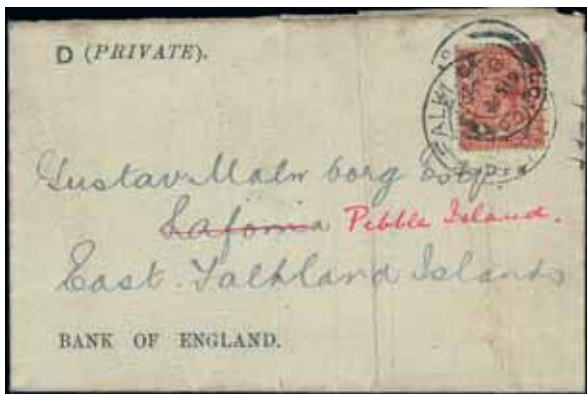 D (PRIVATE).
Gustav Malmborg Esqr
Lafonia Pebble Island.
East Falkland Islands
BANK OF ENGLAND.